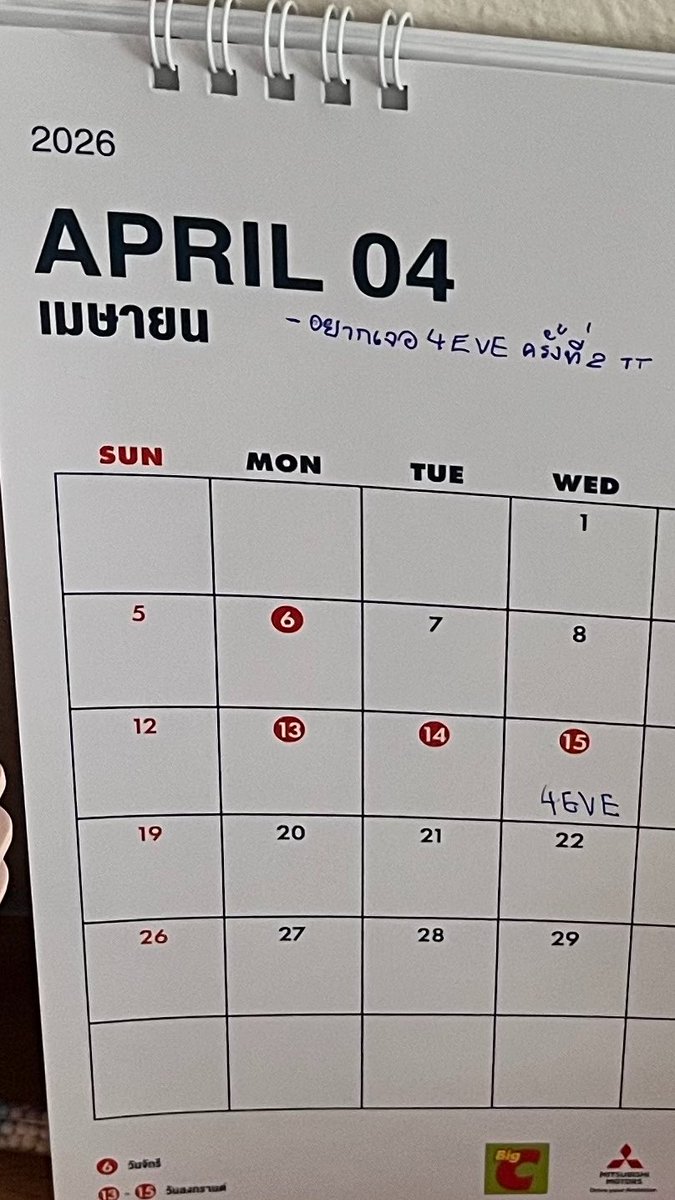 2026
APRIL 04
เมษายน
- อยากเจอ 4EVE ครั้งที่ 2 TT
SUN MON TUE WED
1
5 6 7 8
12 13 14 15
4EVE
19 20 21 22
26 27 28 29
6 วันจักรี
13 - 15 วันสงกรานต์
Big C
MITSUBISHI
MOTORS